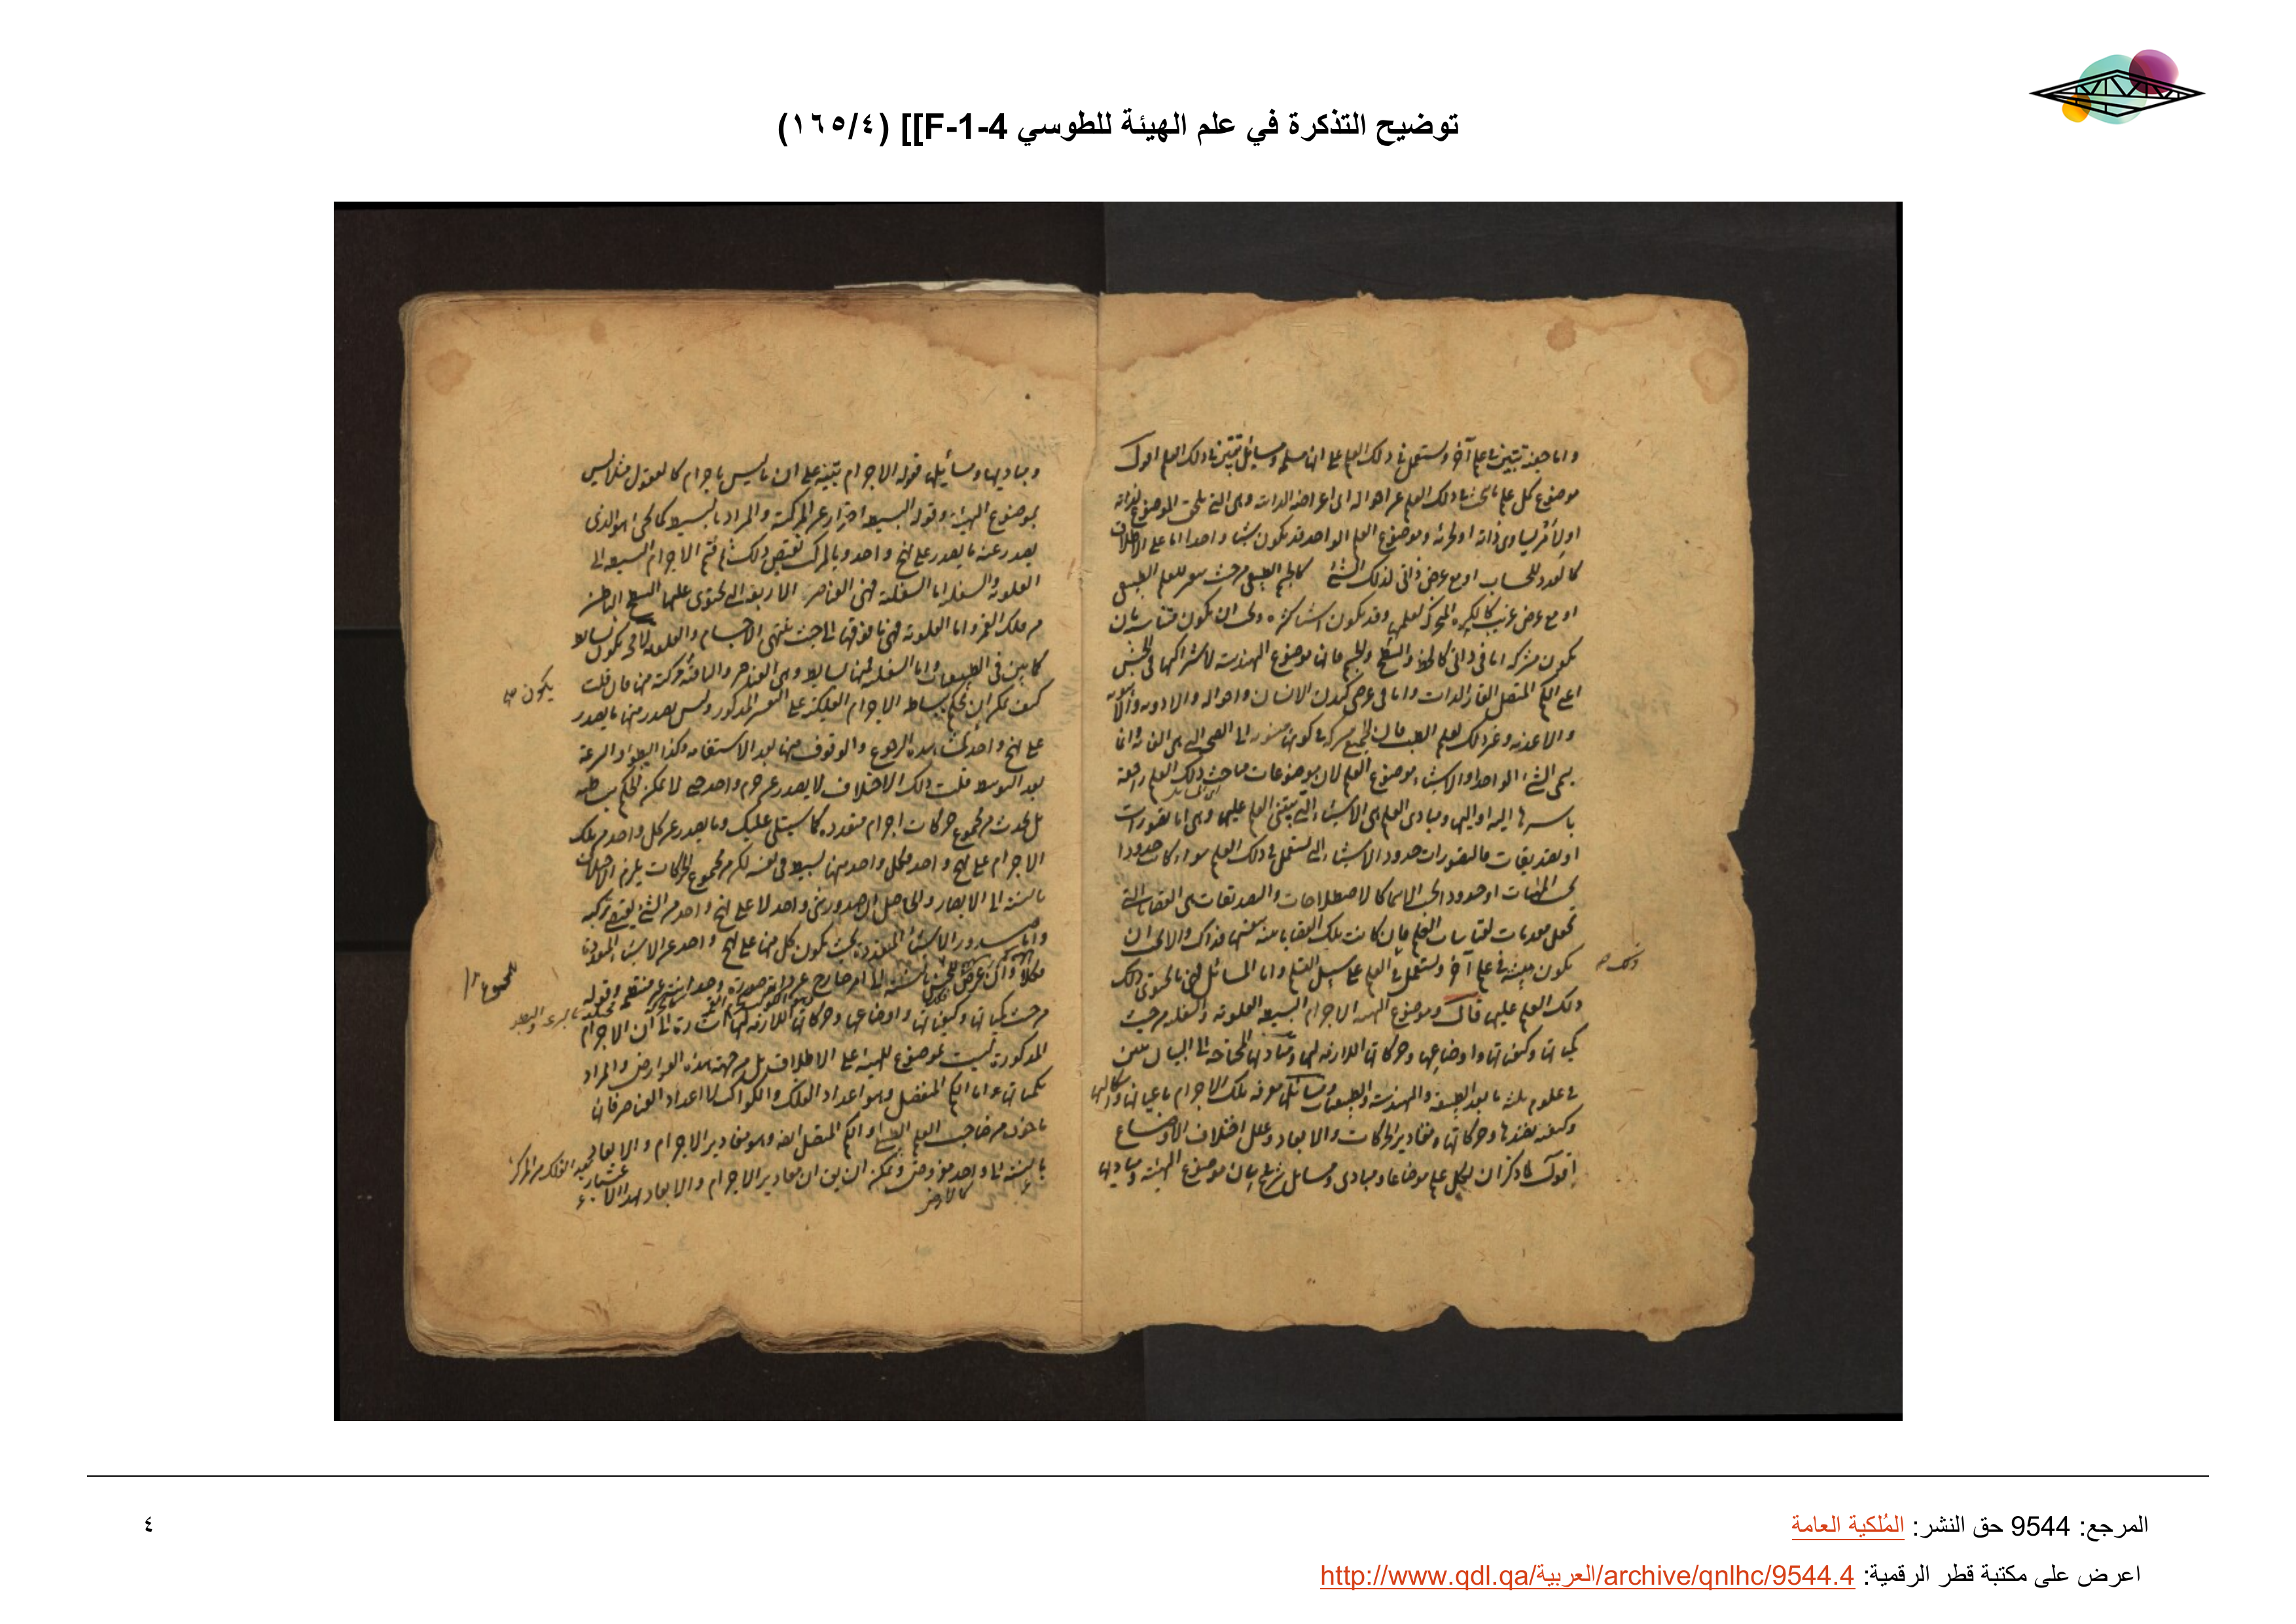 توضيح التذكرة في علم الهيئة للطوسي F-1-4]] (٤/١٦٥)
واما حينئذ تبين في علم آخر وتستعمل في ذلك العلم على انها مسلمة ومسائل تبين في ذلك العلم اقول
موضوع كل علم ما يبحث في ذلك العلم عن احواله اى اعراضه الذاتية وهى التى تلحق الموضوع لذاته
او لامر يساوى ذاته او لجزئه وموضوع العلم الواحد قد يكون شيئا واحدا اما على الاطلاق
كالعدد للحساب او مع عرض ذاتى لذلك الشئ كالجسم الطبيعى من حيث يتغير للعلم الطبيعى
او مع عرض غريب كالكرة المتحركة لعلمها وقد يكون اشياء كثيرة ويجب ان يكون متناسبة بان
يكون مشتركة اما فى ذاتى كالخط والسطح والجسم فانها موضوع الهندسة لاشتراكها فى الجنس
اعنى الكم المتصل القار الذات واما فى عرضى كبدن الانسان واحواله والادوية
والاغذية وغير ذلك لعلم الطب فان الجميع مشتركة فى كونها منسوبة الى الصحة التى هى الغاية وانما
يسمى الشئ الواحد او الاشياء موضوع العلم لان موضوعات مباحث ذلك العلم راجعة
باسرها اليه او اليها ومبادى العلم هى الاشياء التى يبتنى العلم عليها وهى اما تصورات
او تصديقات فالتصورات حدود الاشياء التى تستعمل فى ذلك العلم سواء كانت حدودا
بحسب الماهيات او حدودا بحسب الاسماء كالاصطلاحات والتصديقات هى القضايا التى
تجعل مقدمات لقياسات العلم فان كانت تلك القضايا بينة بنفسها فذاك والا يجب ان
يكون مبينة فى علم آخر وتستعمل فى العلم على سبيل التسلم واما المسائل فهى ما يحتوى
ذلك العلم عليها قال وموضوع الهيئة الاجرام البسيطة العلوية والسفلية من حيث
كمياتها وكيفياتها واوضاعها وحركاتها اللازمة لها ومباديها المحتاجة الى البيان تبين
فى علوم ثلثة ما بعد الطبيعة والهندسة والطبيعيات ومسائلها معرفة تلك الاجرام باعيانها واشكالها
وكيفية نضدها وحركاتها ومقادير الحركات والابعاد وعلل اختلاف الاوضاع
اقول لما ذكر ان لكل علم موضوعا ومبادى ومسائل شرع فى بيان موضوع الهيئة ومباديها
ومباديها ومسائلها قوله الاجرام تنبيه على ان ما ليس باجرام كالعقول مثلا ليس
بموضوع الهيئة وقوله البسيطة احتراز عن المركبة والمراد بالبسيط هو الذى
يصدر عنه ما يصدر على نهج واحد وبالمركب نقيض ذلك ثم قسم الاجرام البسيطة الى
العلوية والسفلية اما السفلية فهى العناصر الاربعة التى يحتوى عليها السطح الباطن
من فلك القمر واما العلوية فهى ما فوقها الى حيث ينتهى الاجسام والعلوية
كما بين فى الطبيعيات واما السفلية فمنها بسايط وهى العناصر والباقية مركبة منها فان قلت
كيف يمكن ان يحكم ببساطة الاجرام الفلكية على التفسير المذكور وليس يصدر منها ما يصدر
على نهج واحد لمشاهدة الرجوع والوقوف منها بعد الاستقامة وكذا البطؤ او السرعة
بعد التوسط قلت ذلك الاختلاف لا يصدر عن جرم واحد حتى لا يمكن الحكم ببساطته
بل يحدث من مجموع حركات اجرام متعددة كما سيتلى عليك وما يصدر عن كل واحد من تلك
الاجرام على نهج واحد فكل واحد منها بسيط فى نفسه لكن من مجموع الحركات يلزم الاختلاف
بالنسبة الى الابصار والحاصل ان صدور شئ واحد لا على نهج واحد من الشئ يقتضى تركبه
واما صدور الاشياء المتعددة بحيث يكون كل منها على نهج واحد عن الاشياء المتعددة
من حيث كمياتها وكيفياتها واوضاعها وحركاتها اللازمة لها اشارة الى ان الاجرام
المذكورة ليست بموضوع للهيئة على الاطلاق بل من جهة هذه العوارض والمراد
بكمياتها اما الكم المنفصل وهو اعداد الفلك والكواكب لا اعداد العناصر فانها
ماخوذة من صاحب العلم الطبيعى او الكم المتصل ايضا وهو مقادير الاجرام والابعاد
بالنسبة الى واحد مفروض ويمكن ان يقال ان مقادير الاجرام والابعاد بهذا الاعتبار
كالارض
يكون صح
المجموع
المرجع: 9544 حق النشر: المُلكية العامة
اعرض على مكتبة قطر الرقمية: http://www.qdl.qa/العربية/archive/qnlhc/9544.4
٤